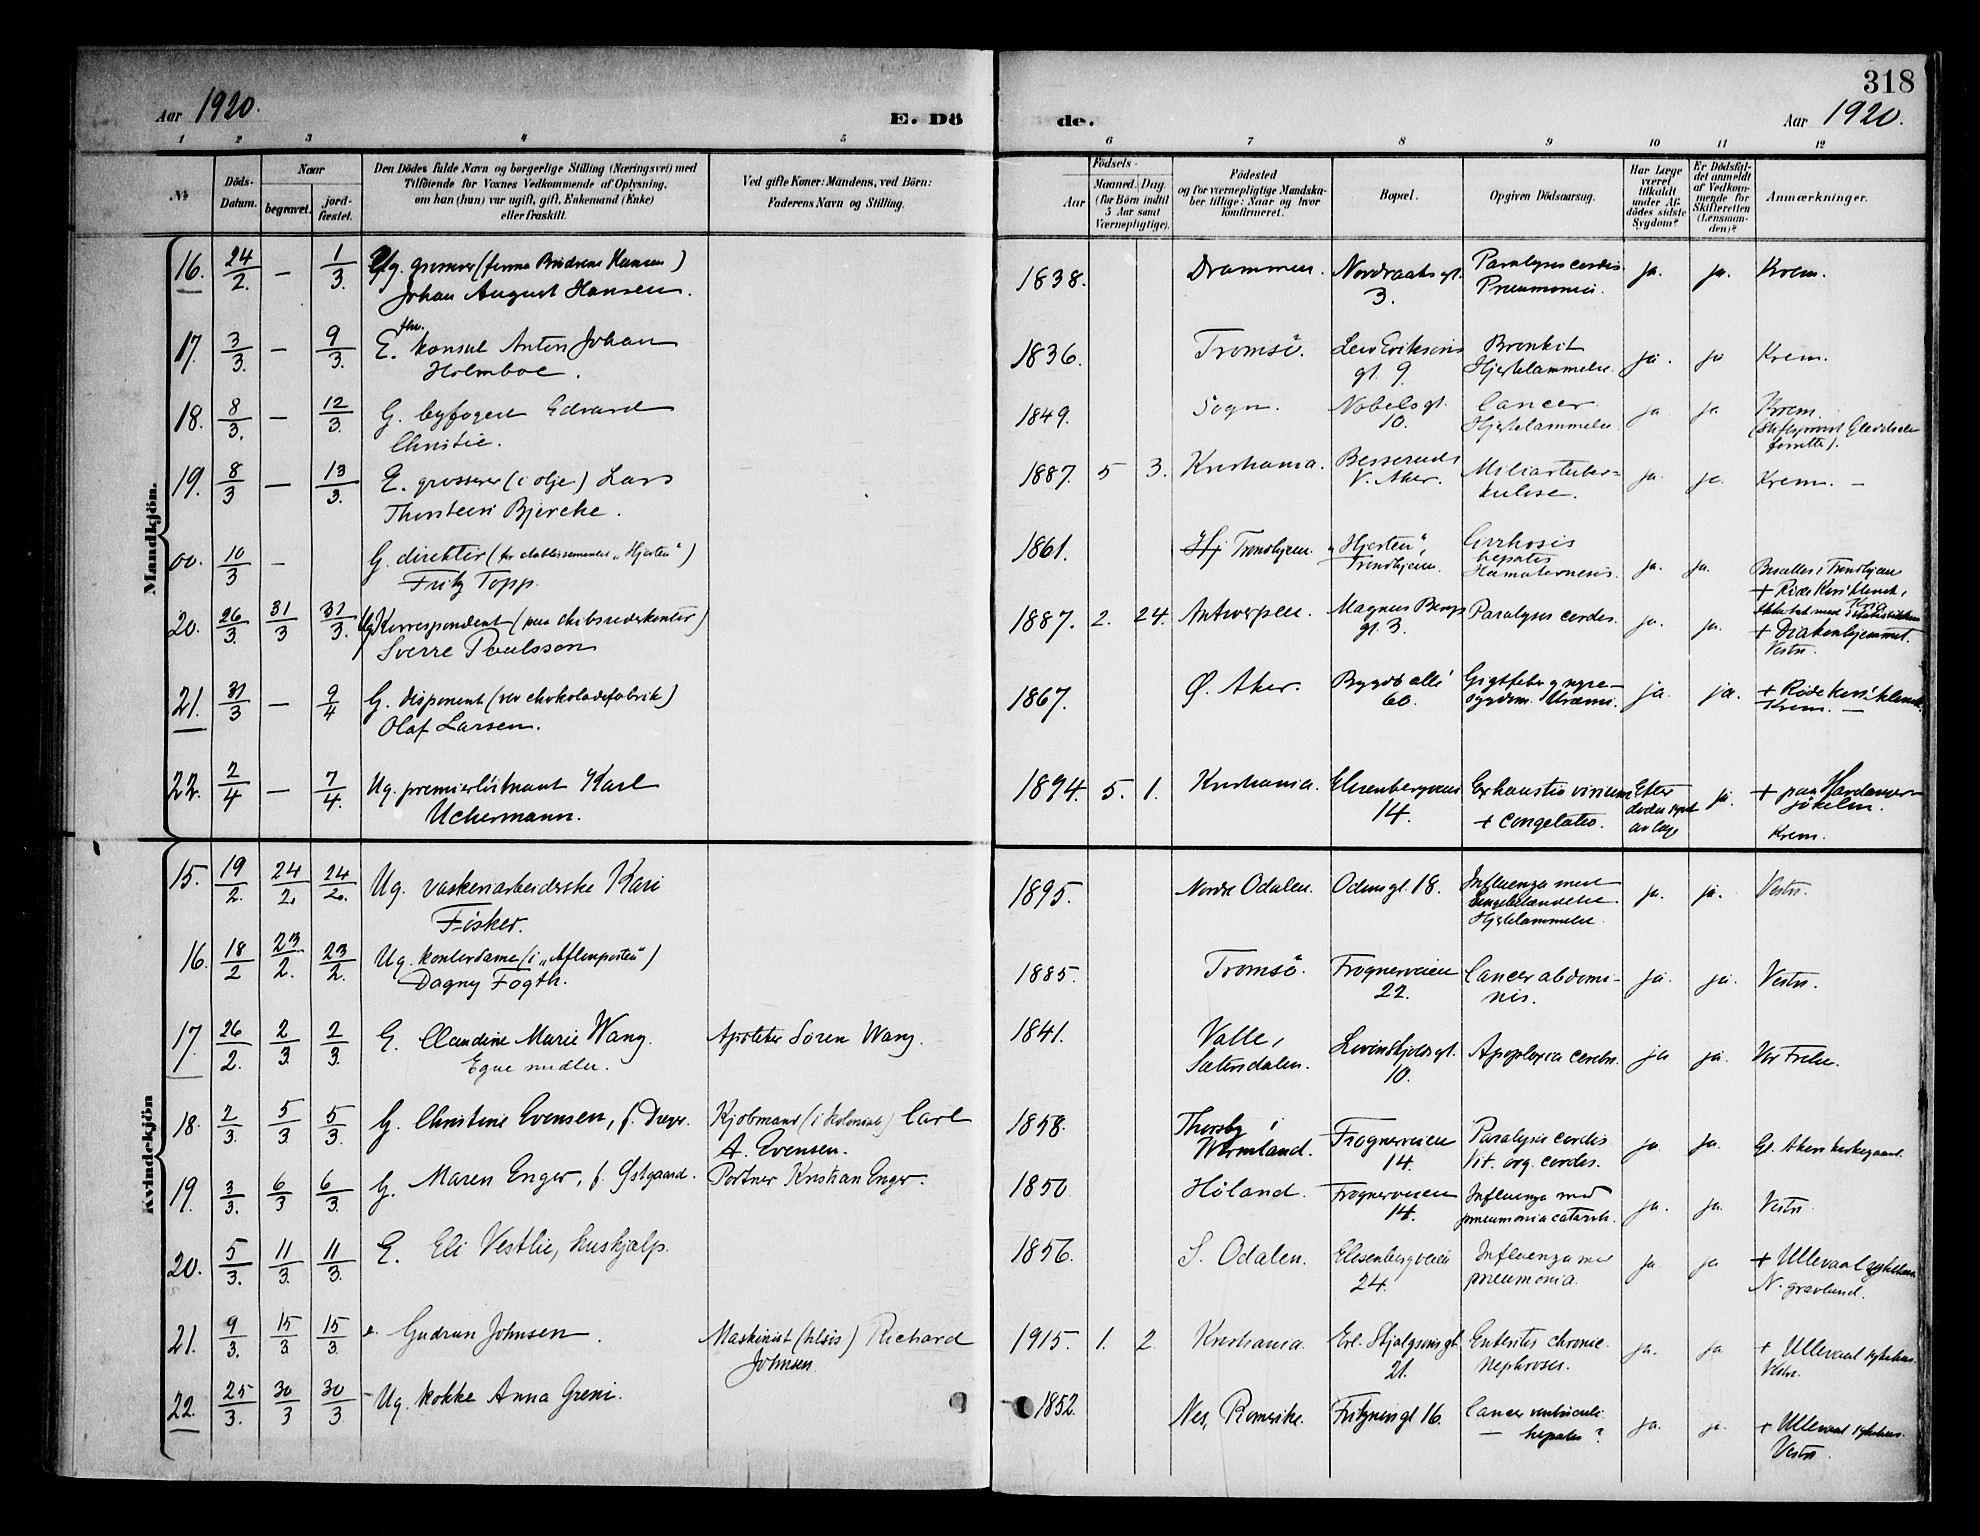 318
Aar 1920.
E. Dö
de.
Aar 1920.
1 2 3 4 5 6 7 8 9 10 11 12
№
Döds-
Datum.
Naar
begravet.
jord-
fæstet.
Den Dödes fulde Navn og borgerlige Stilling (Næringsvei) med
Tilföiende for Voxnes Vedkommende af Oplysning,
om han (hun) var ugift, gift, Enkemand (Enke)
eller fraskilt.
Ved gifte Koner: Mandens, ved Börn:
Faderens Navn og Stilling.
Födsels-
Aar
Maaned. Dag.
(for Börn indtil
5 Aar samt
Værnepligtige).
Födested
og for værnepligtige Mandska-
ber tillige: Naar og hvor
konfirmeret.
Bopæl.
Opgiven Dödsaarsag.
Har Læge
været
tilkaldt
under Af-
dödes sidste
Sygdom?
Er Dödsfal-
det anmeldt
af Vedkom-
mende for
Skifteretten
(Lensman-
den)?
Anmærkninger.
Mandkjön.
16. 24/2. — 1/3. Ug. grosserer (firma Brödrene Hansen)
Johan August Hansen. 1838. Drammen. Nordraaks gt.
3. Paralysis cordis.
Pneumoni. ja. ja. Krem.
17. 3/3. — 9/3. E. fhv. konsul Anton Johan
Holmboe. 1836. Tromsö. Leiv Eriksons
gt. 9. Bronkit
Hjertelammelse. ja. ja Krem.
18. 8/3. — 12/3. G. byfoged Edvard
Christie. 1849. Sogn. Nobels gt.
10. Cancer.
Hjertelammelse. ja. ja. Krem.
forrettet).
19. 8/3 — 13/3. E. grosserer (i olje) Lars
Thorstein Bjercke. 1887. 5 3. Kristiania. Besserud
V. Aker. Miliartuber-
kulose. ja. ja. Krem. —
00. 10/3 — G. direktör (for etablissementet "Hjorten")
Fritz Topp. 1861. Hj Trondhjem. "Hjorten",
Trondhjem. Cirrhosis
hepatis
Hæmatemesis. ja. ja. Trondhjem
20. 26/3. 31/3 31/3. Ug. Korrespondent (paa skibsrederkontor)
Sverre Poulsson 1887. 2. 24. Antwerpen. Magnus Bergs
gt. 3. Paralysis cordis. ja. ja. + Diakonhjemmet.
Vestre.
21. 31/3 — 9/4 G. disponent (ved chokoladefabrik)
Olaf Larsen. 1867. Ø. Aker. Bygdö allé
60. Gigtfeber nyre-
sygdom. Uræmi. ja. ja. + Röde Kors' klinik.
Krem. —
22. 2/4 — 7/4. Ug. premierlöitnant Karl
Uchermann. 1894. 5. 1. Kristiania. Elisenbergveien
14. Exhaustio virium
+ congelatio. Efter
döden synet
av læge ja. + paa Hardanger-
jökelen.
Krem.
Kvindekjön
15. 19/2. 24/2. 24/2. Ug. vaskeriarbeiderske Kari
Fisker. 1895. Nordre Odalen. Odins gt 18. Influenza med
lungebetændelse.
Hjertelammelse. ja. ja. Vestre.
16. 18/2 23/2. 23/2. Ug. kontordame (i "Aftenposten")
Dagny Fogth. 1885. Tromsö. Frognerveien
22. Cancer abdomi-
nis. ja. ja. Vestre.
17 26/2. 2/3. 2/3. E. Claudine Marie Wang.
Egne midler. Apoteker Sören Wang. 1841. Valle,
Sætersdalen. Lövenskjolds gt.
10. Apoplexia cerebri. ja ja. Vor Frelser.
18. 2/3. 5/3 5/3. G. Christine Evensen, f. Dreyer. Kjöbmand (i kolonial) Carl
A. Evensen. 1858. Thorsby i
Wermland. Frognerveien
14. Paralysis cordis.
Vit. org. cordis. ja ja. Gl. Akers kirkegaard.
19. 3/3. 6/3 6/3. G. Maren Enger, f. Østgaard. Portner Kristian Enger. 1850. Höland. Frognerveien
14. Influenza med
pneumonia catarrh. ja. ja. Vestre
20. 5/3. 11/3. 11/3. E. Eli Vestlie, hushjælp. 1856. S. Odalen. Elisenbergveien
24. Influenza med
pneumonia. ja ja + Ullevaal sykehus
N. gravlund.
21. 9/3. 15/3 15/3. e. Gudrun Johnsen. Maskinist (tilsjös) Richard
Johnsen. 1915. 1. 2. Kristiania. Erl. Skjalgsons gt.
21. Enteritis chronic.
Nephrosis. ja. ja + Ullevaal sykehus.
Vestre.
22. 25/3. 30/3 30/3 Ug. kokke Anna Greni. 1852. Nes, Romerike. Fritzners gt 16. Cancer ventriculi
— hepatis? ja. ja. + Ullevaal sykehus.
Vestre